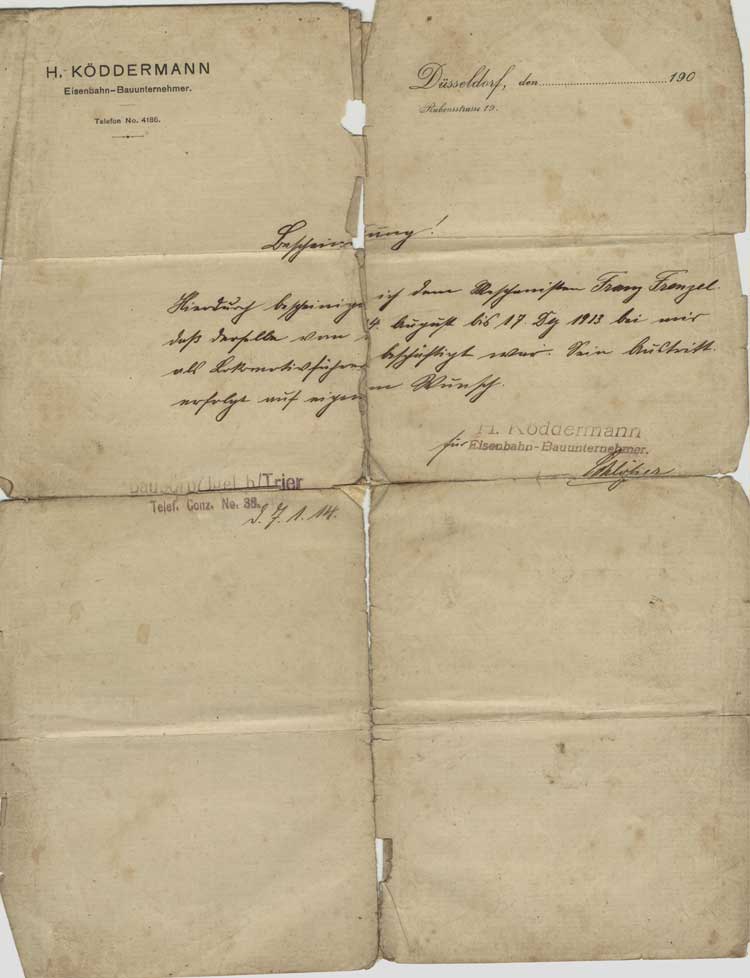 H. KÖDDERMANN
Eisenbahn-Bauunternehmer.
Telefon No. 4186.
Düsseldorf, den 190
Rubensstrasse 19.
Bescheinigung!
Hierdurch bescheinige ich dem Maschinisten Franz Frenzel.
daß derselbe vom 4. August bis 17. Dz 1913 bei mir
als Lokomotivführer beschäftigt war. Sein Austritt
erfolgt auf eigenen Wunsch.
H. Köddermann
für Eisenbahn-Bauunternehmer.
b/Trier
Telef. Conz. No. 38.
d. 7. 1. 14.